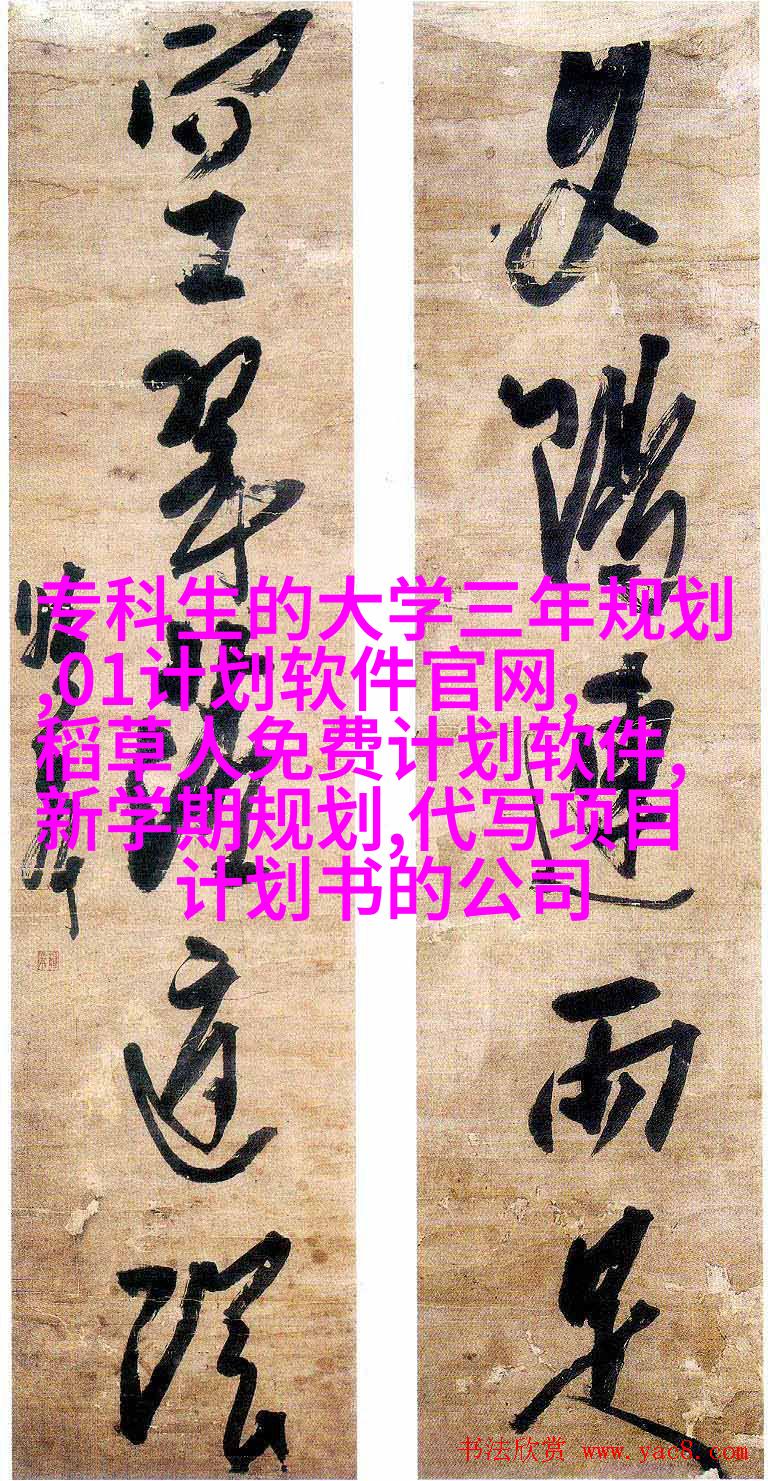 夕陽連雨足
空翠落庭陰
专科生的大学三年规划
,01计划软件官网,
稻草人免费计划软件,
新学期规划,代写项目
计划书的公司
书法欣赏 www.yac8.com